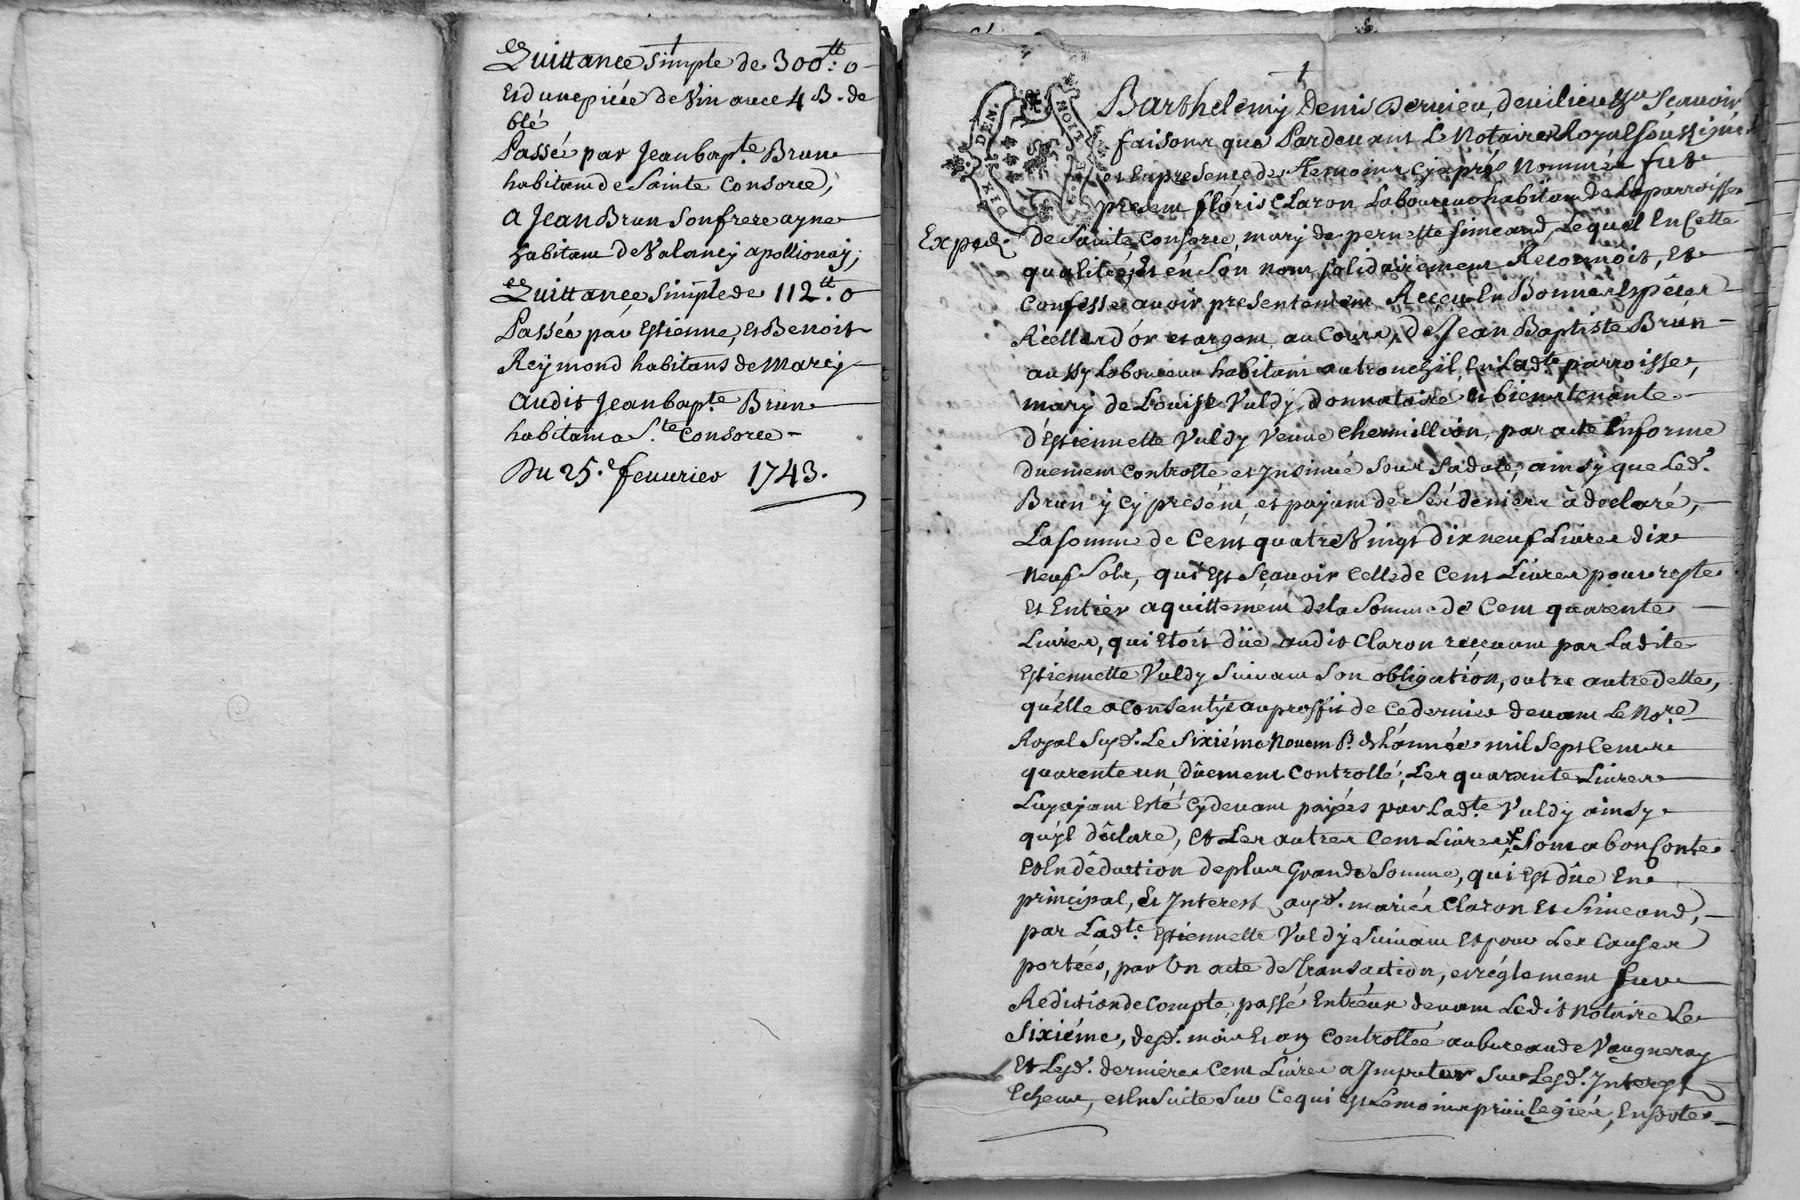 Quittance simple de 300tt. o
Et d'une piéce de Vin avec 4 B. de
blé
Passé par Jean bapte. Brun
habitant de Sainte Consorce,
A Jean Brun Son frere ayné
habitant de Valancy apollionay,
Quittance simple de 112tt. o
Passée par Estienne, et Benoit
Reymond habitans de Marcy
audit Jean bapte. Brun
habitant a Ste. Consorce
Du 25e. feuurier 1743.
GEN. DE LYON
DIX DEN.
Barthelemy Denis Deruieu, Scauoir
faisons que Pardeuant Le Notaire Royal soussigné
et En presence des Temoins Cy apres Nommés fut
présent floris Claron Laboureur habitant de la parroisse
Exped.
de Sainte Consorce, mary de pernette simeand, Lequel En Cette
qualitéé, Et en Son nom solidairement Reconnoit, Et
Confesse avoir presentement Receu En Bonnes Espéces
Réelles d'or et argent, au Cours, de Jean Baptiste Brun
aussy Laboureur habitant au tronchil, En Ladte. parroisse,
mary de Louise Vuldy, donnataire et bien tenante
d'Estiennette Vuldy Veuue Chermillion, par acte En forme
duement Controllé et Insinué Sous Sa date, ainsy que Led.
Brun y Cy présent, et payant de Ses deniers à declaré,
La Somme de Cent quatre Vingt Dix neuf Livres dix
neuf Sols, qui Est Sçauoir Celle de Cent Livres pour reste
Et Entier aquittement de la Somme de Cent quarente
Livres, qui Etoit düe audit Claron receuant par Ladite
Estiennette Vuldy Suiuant Son obligation, outre autre dette,
qu'elle a Consentye au proffit de Ce dernier deuant Le Nore.
Royal Susd. Le Sixiéme Nouemb. de L'année mil Sept Cents
quarente un dûement Controllé, Les quarante Livres
Luy ayant Esté Cy deuant payés par Ladte. Vuldy ainsy
qu'yl déclare, Et Les autres Cent Livres, Sont a bon Conte
Et En déduction de plus Grande Somme, qui Est düe En
principal, Et Interest ausd. mariés Claron Et Simeand,
par Ladte. Estiennette Vuldy Suiuant Et pour Les Causes
portées, par Un acte de Transaction, et réglement sur
Redition de Compte, passé Entr'eux deuant Ledit Notaire Le
Sixiéme, desd. mois Et an Controllée au bureau de Vaugneray
Et Lesd. dernieres Cent Livres a Imputer Sur Lesd. Interest
Echeus, et En Suite Sur Ce qui Est Le moins priuilegiér, En Sorte